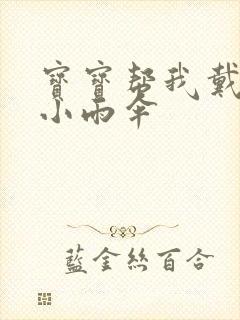 寶寶幫我戴
小雨傘
藍金絲百合